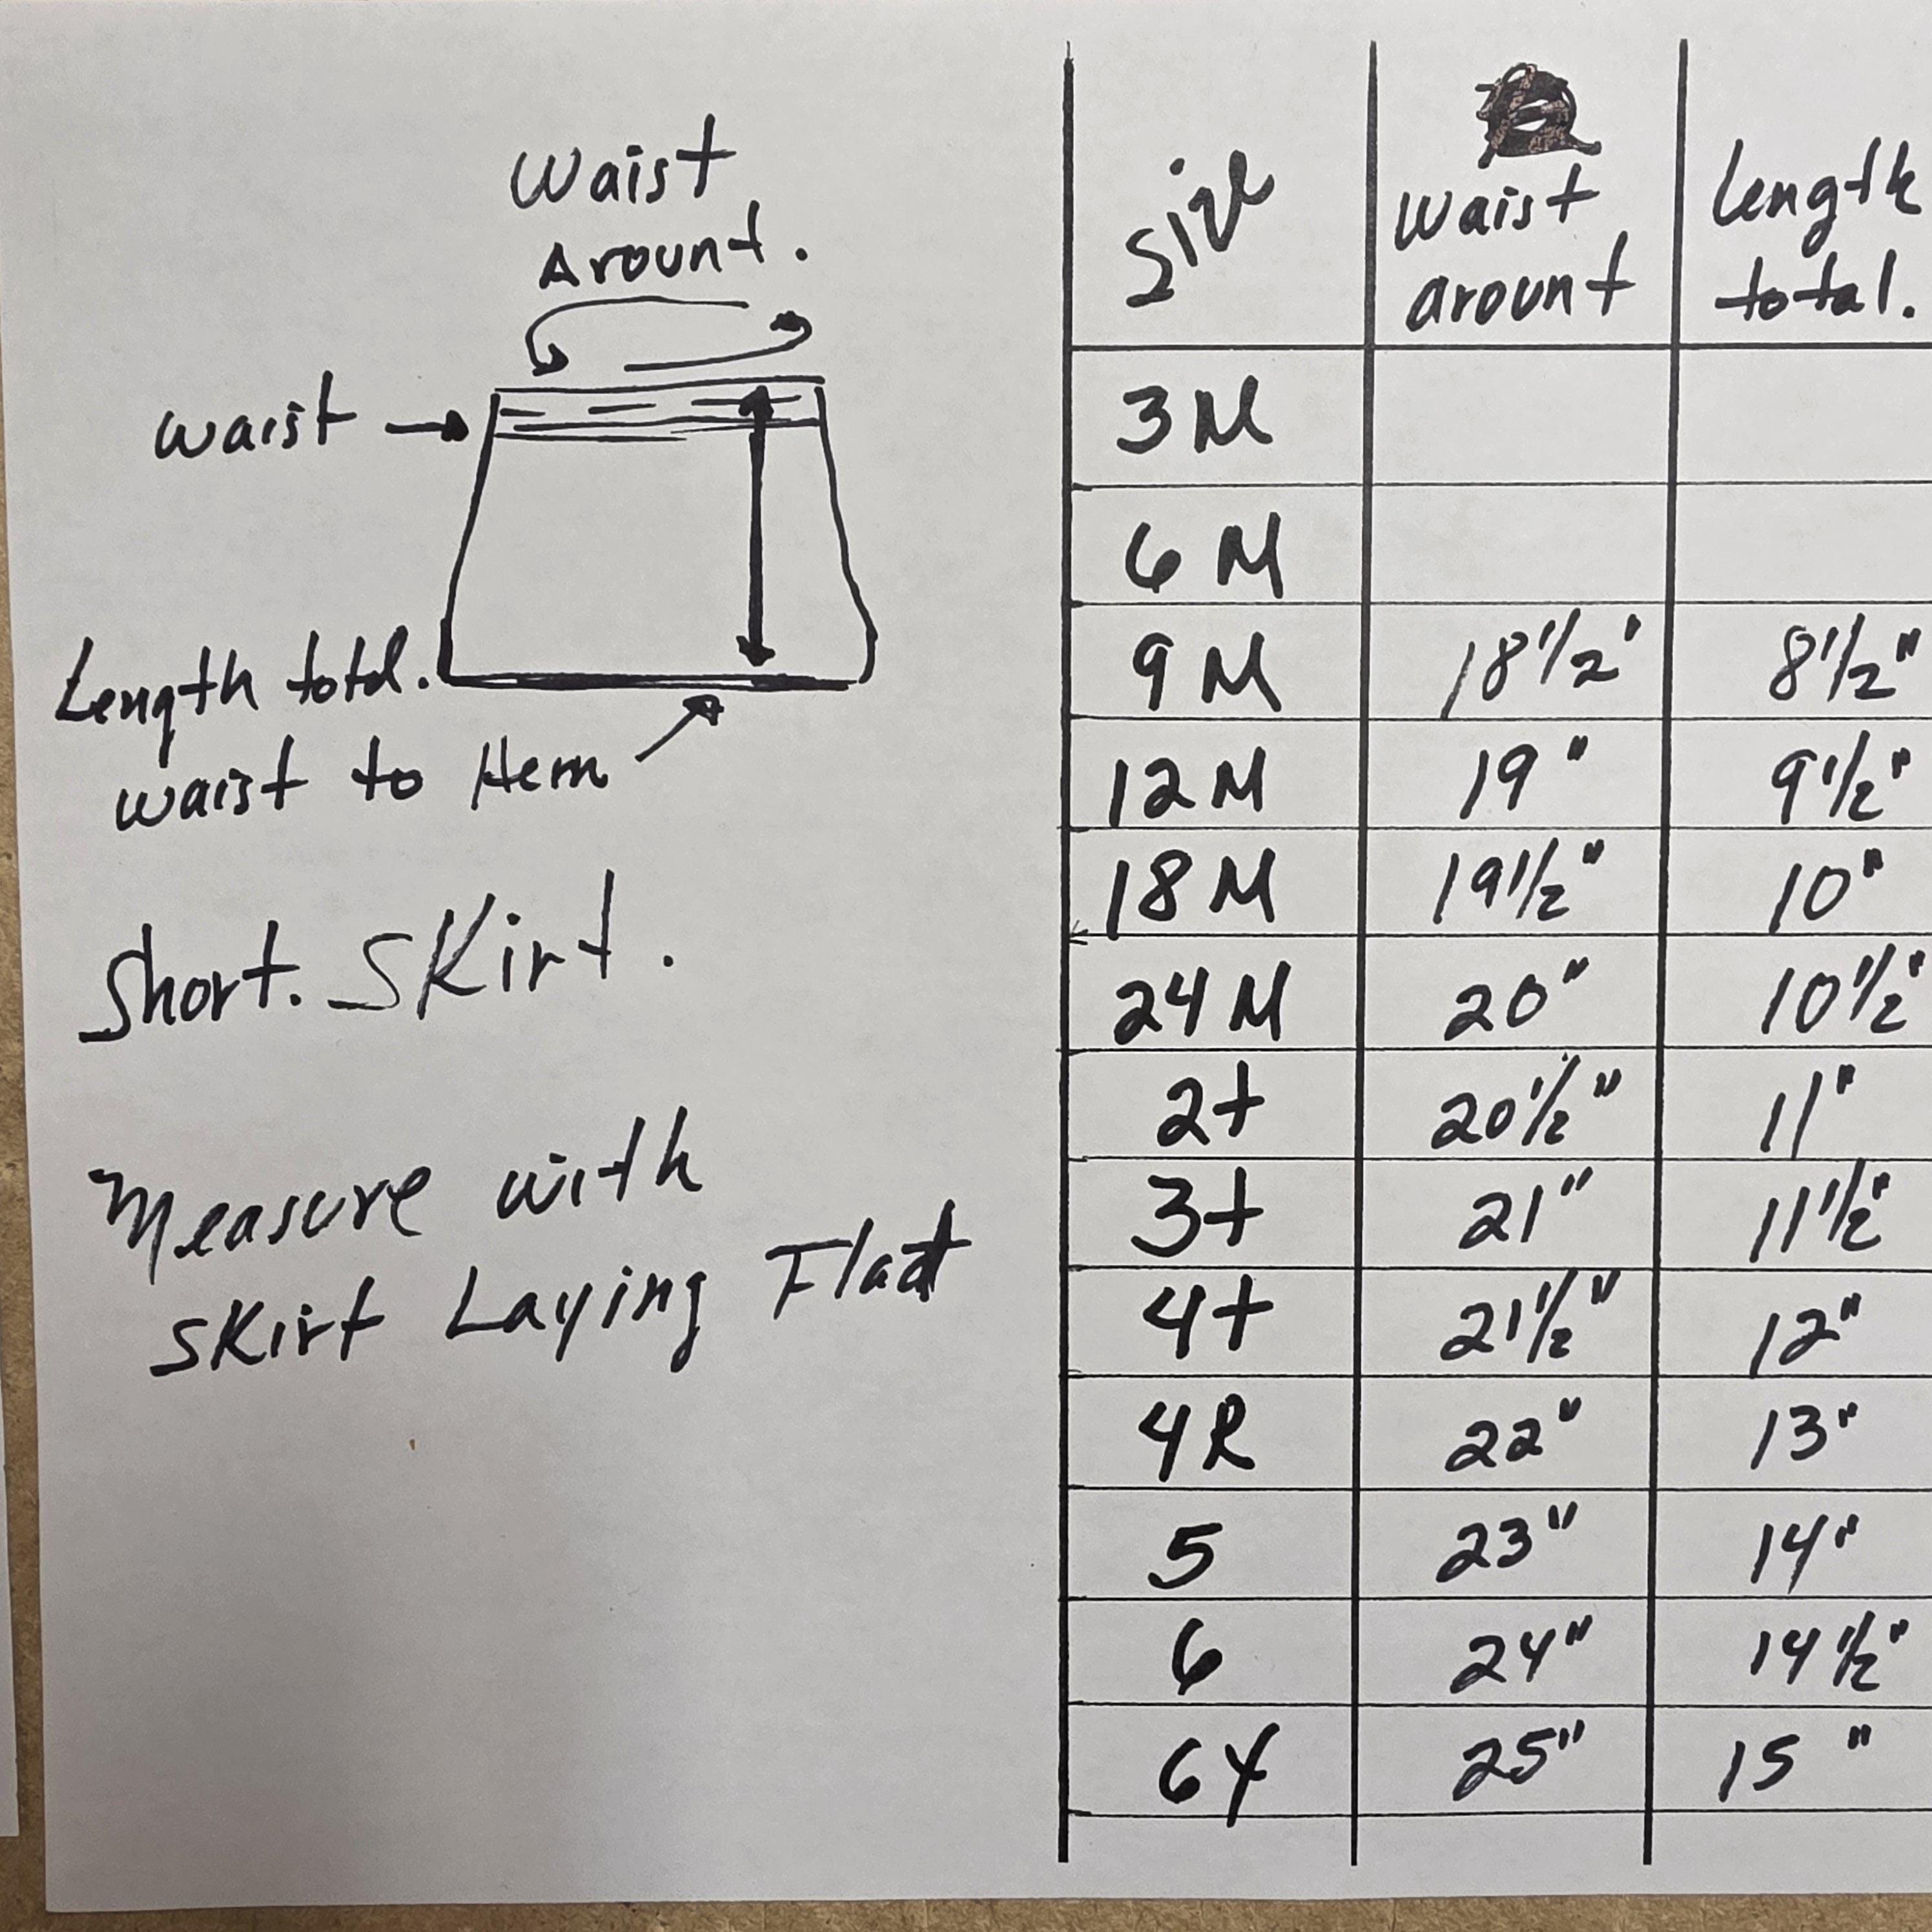 Waist
Arount.
waist
Length total.
waist to Hem
Short. SKirt.
Measure with
SKirt Laying Flat
Size waist arount Length total.
3M
6M
9M 18 1/2' 8 1/2"
12M 19" 9 1/2"
18M 19 1/2" 10"
24M 20" 10 1/2"
2t 20 1/2" 11"
3t 21" 11 1/2"
4t 21 1/2" 12"
4R 22" 13"
5 23" 14"
6 24" 14 1/2"
6Y 25" 15"